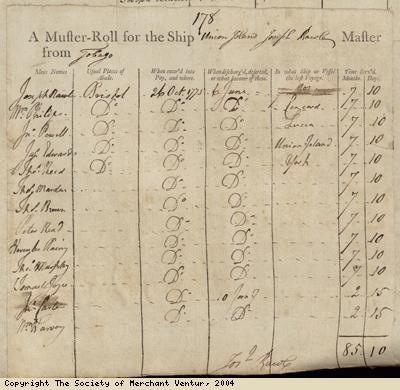 178
A Muster-Roll for the Ship Union Island Joseph Rawle Master
from Tobago
Mens Names Usual Places of Abode. When enter'd into Pay, and where. When discharg'd, deserted, or what become of them. In what Ship or Vessel the last Voyage. Time Serv'd. Months. Days.
Joseph Rawle Bristol 26 Oct 1775 6 June 7 10
Wm Philips Do Do Do Concord 7 10
Jno Powell Do Do Do Lucea 7 10
Jas Edwards Do Do Do Union Island 7 10
Thos Reed Do Do Do York 7 10
Thos Marden Do Do 7 10
Thos Brown Do Do 7 10
Peter Read Do Do 7 10
Hercules Do Do 7 10
Thos Murphy Do Do 7 10
Samuel Do Do 7 10
Do 2 15
Wm Harvey Do Do 2 15
85 10
Jos Rawle
Copyright The Society of Merchant Ventur, 2004